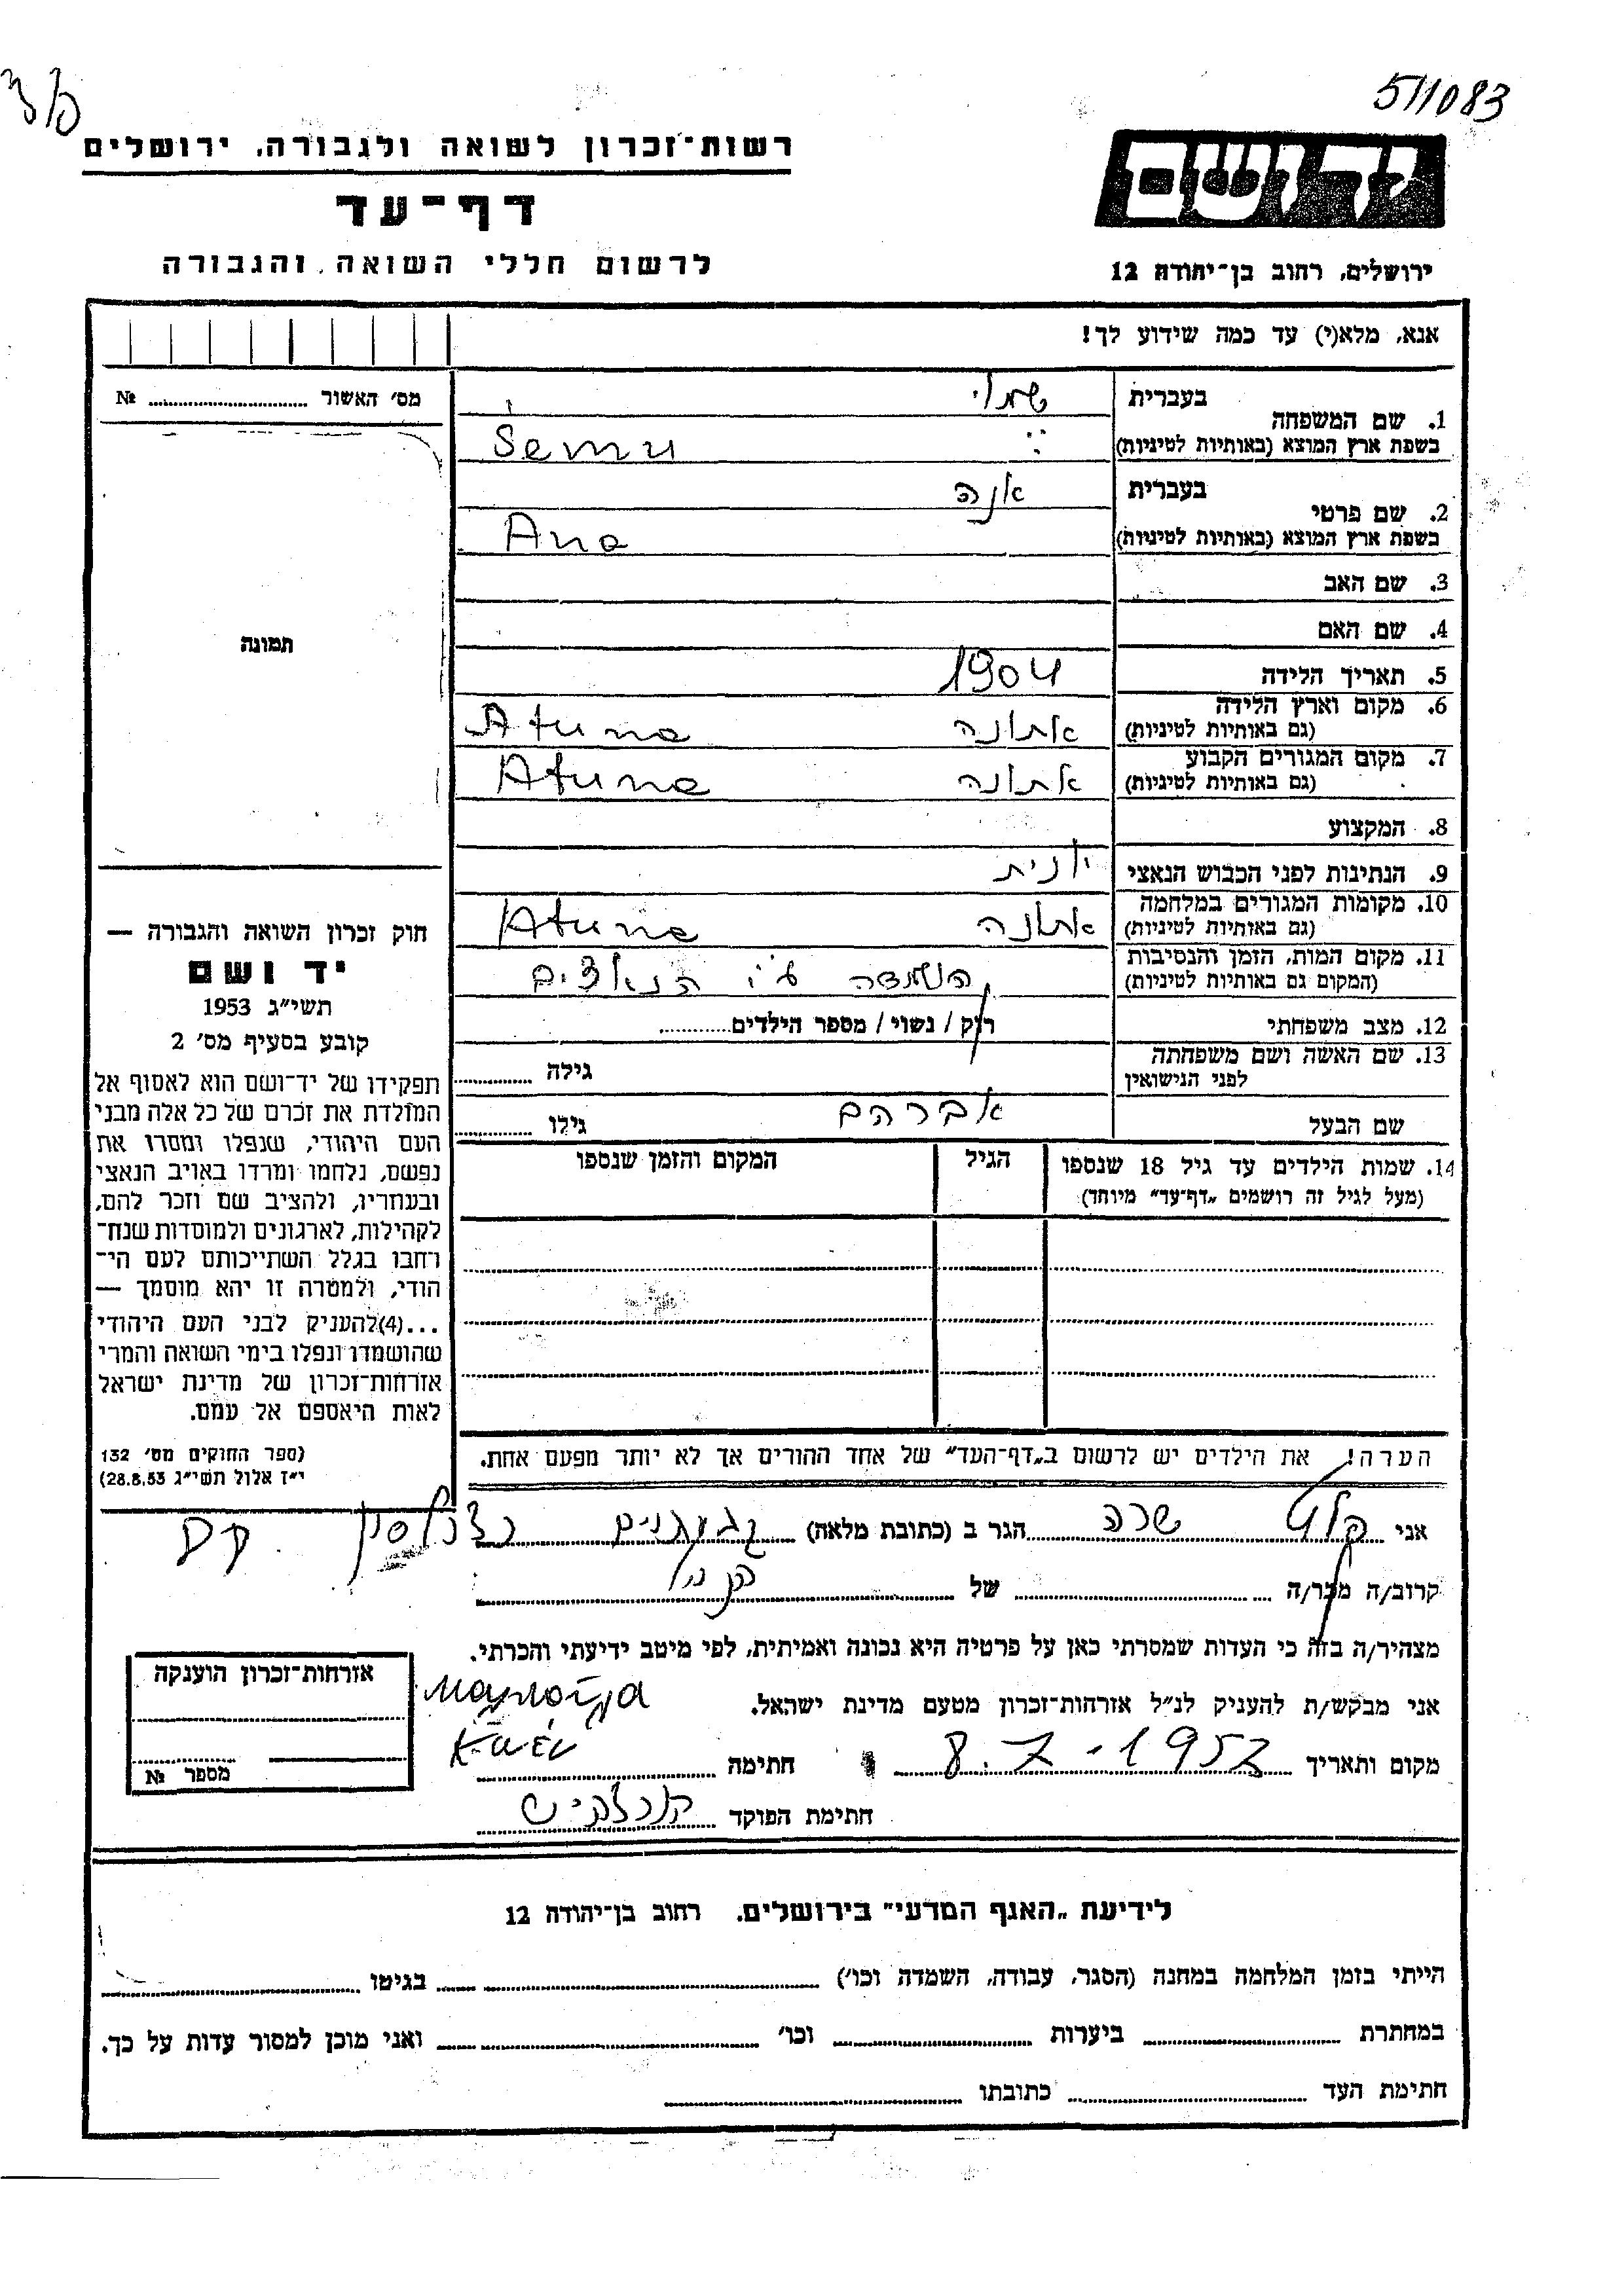 511083
רשות־זכרון לשואה ולגבורה, ירושלים
דף־עד
לרשום חללי השואה והגבורה
יד ושם
ירושלים, רחוב בן־יהודה 12
אנא, מלא(י) עד כמה שידוע לך!
מס׳ האשור ........ №
תמונה
1. שם המשפחה
בעברית
בשפת ארץ המוצא (באותיות לטיניות)
Semu
2. שם פרטי
בעברית אנה
בשפת ארץ המוצא (באותיות לטיניות) Ana
3. שם האב
4. שם האם
5. תאריך הלידה 1904
6. מקום וארץ הלידה
(גם באותיות לטיניות) אתונה Atuna
7. מקום המגורים הקבוע
(גם באותיות לטיניות) אתונה Atuna
8. המקצוע
9. הנתינות לפני הכבוש הנאצי יונית
10. מקומות המגורים במלחמה
(גם באותיות לטיניות) אתונה Atuna
11. מקום המות, הזמן והנסיבות
(המקום גם באותיות לטיניות) הושמדה ע״י הנאצים
12. מצב משפחתי רוק / נשוי / מספר הילדים........
13. שם האשה ושם משפחתה
לפני הנישואין גילה ........
שם הבעל אברהם גילו ........
14. שמות הילדים עד גיל 18 שנספו הגיל המקום והזמן שנספו
(מעל לגיל זה רושמים „דף־עד״ מיוחד)
הערה! את הילדים יש לרשום ב„דף־העד״ של אחד ההורים אך לא יותר מפעם אחת.
חוק זכרון השואה והגבורה —
יד ושם
תשי״ג 1953
קובע בסעיף מס׳ 2
תפקידו של יד־ושם הוא לאסוף אל
המולדת את זכרם של כל אלה מבני
העם היהודי, שנפלו ומסרו את
נפשם, נלחמו ומרדו באויב הנאצי
ובעוזריו, ולהציב שם וזכר להם,
לקהילות, לארגונים ולמוסדות שנח־
רחבו בגלל השתייכותם לעם הי־
הודי, ולמטרה זו יהא מוסמך —
...(4)להעניק לבני העם היהודי
שהושמדו ונפלו בימי השואה והמרי
אזרחות־זכרון של מדינת ישראל
לאות היאספם אל עמם.
(ספר החוקים מס׳ 132
י״ז אלול תשי״ג 28.8.53)
אני שרה הגר ב (כתובת מלאה) גבעתיים
קרוב/ה מכר/ה ........ של ........
מצהיר/ה בזה כי העדות שמסרתי כאן על פרטיה היא נכונה ואמיתית, לפי מיטב ידיעתי והכרתי.
אני מבקש/ת להעניק לנ״ל אזרחות־זכרון מטעם מדינת ישראל.
מקום ותאריך 8.7-1957 חתימה
חתימת הפוקד
אזרחות־זכרון הוענקה
מספר №
לידיעת „האגף המדעי״ בירושלים. רחוב בן־יהודה 12
הייתי בזמן המלחמה במחנה (הסגר, עבודה, השמדה וכו׳) ........ בגיטו ........
במחתרת ........ ביערות ........ וכו׳ ........ ואני מוכן למסור עדות על כך.
חתימת העד ........ כתובתו ........